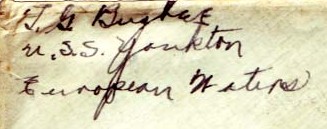 T. G. Bugbee
U.S.S. Yankton
European Waters